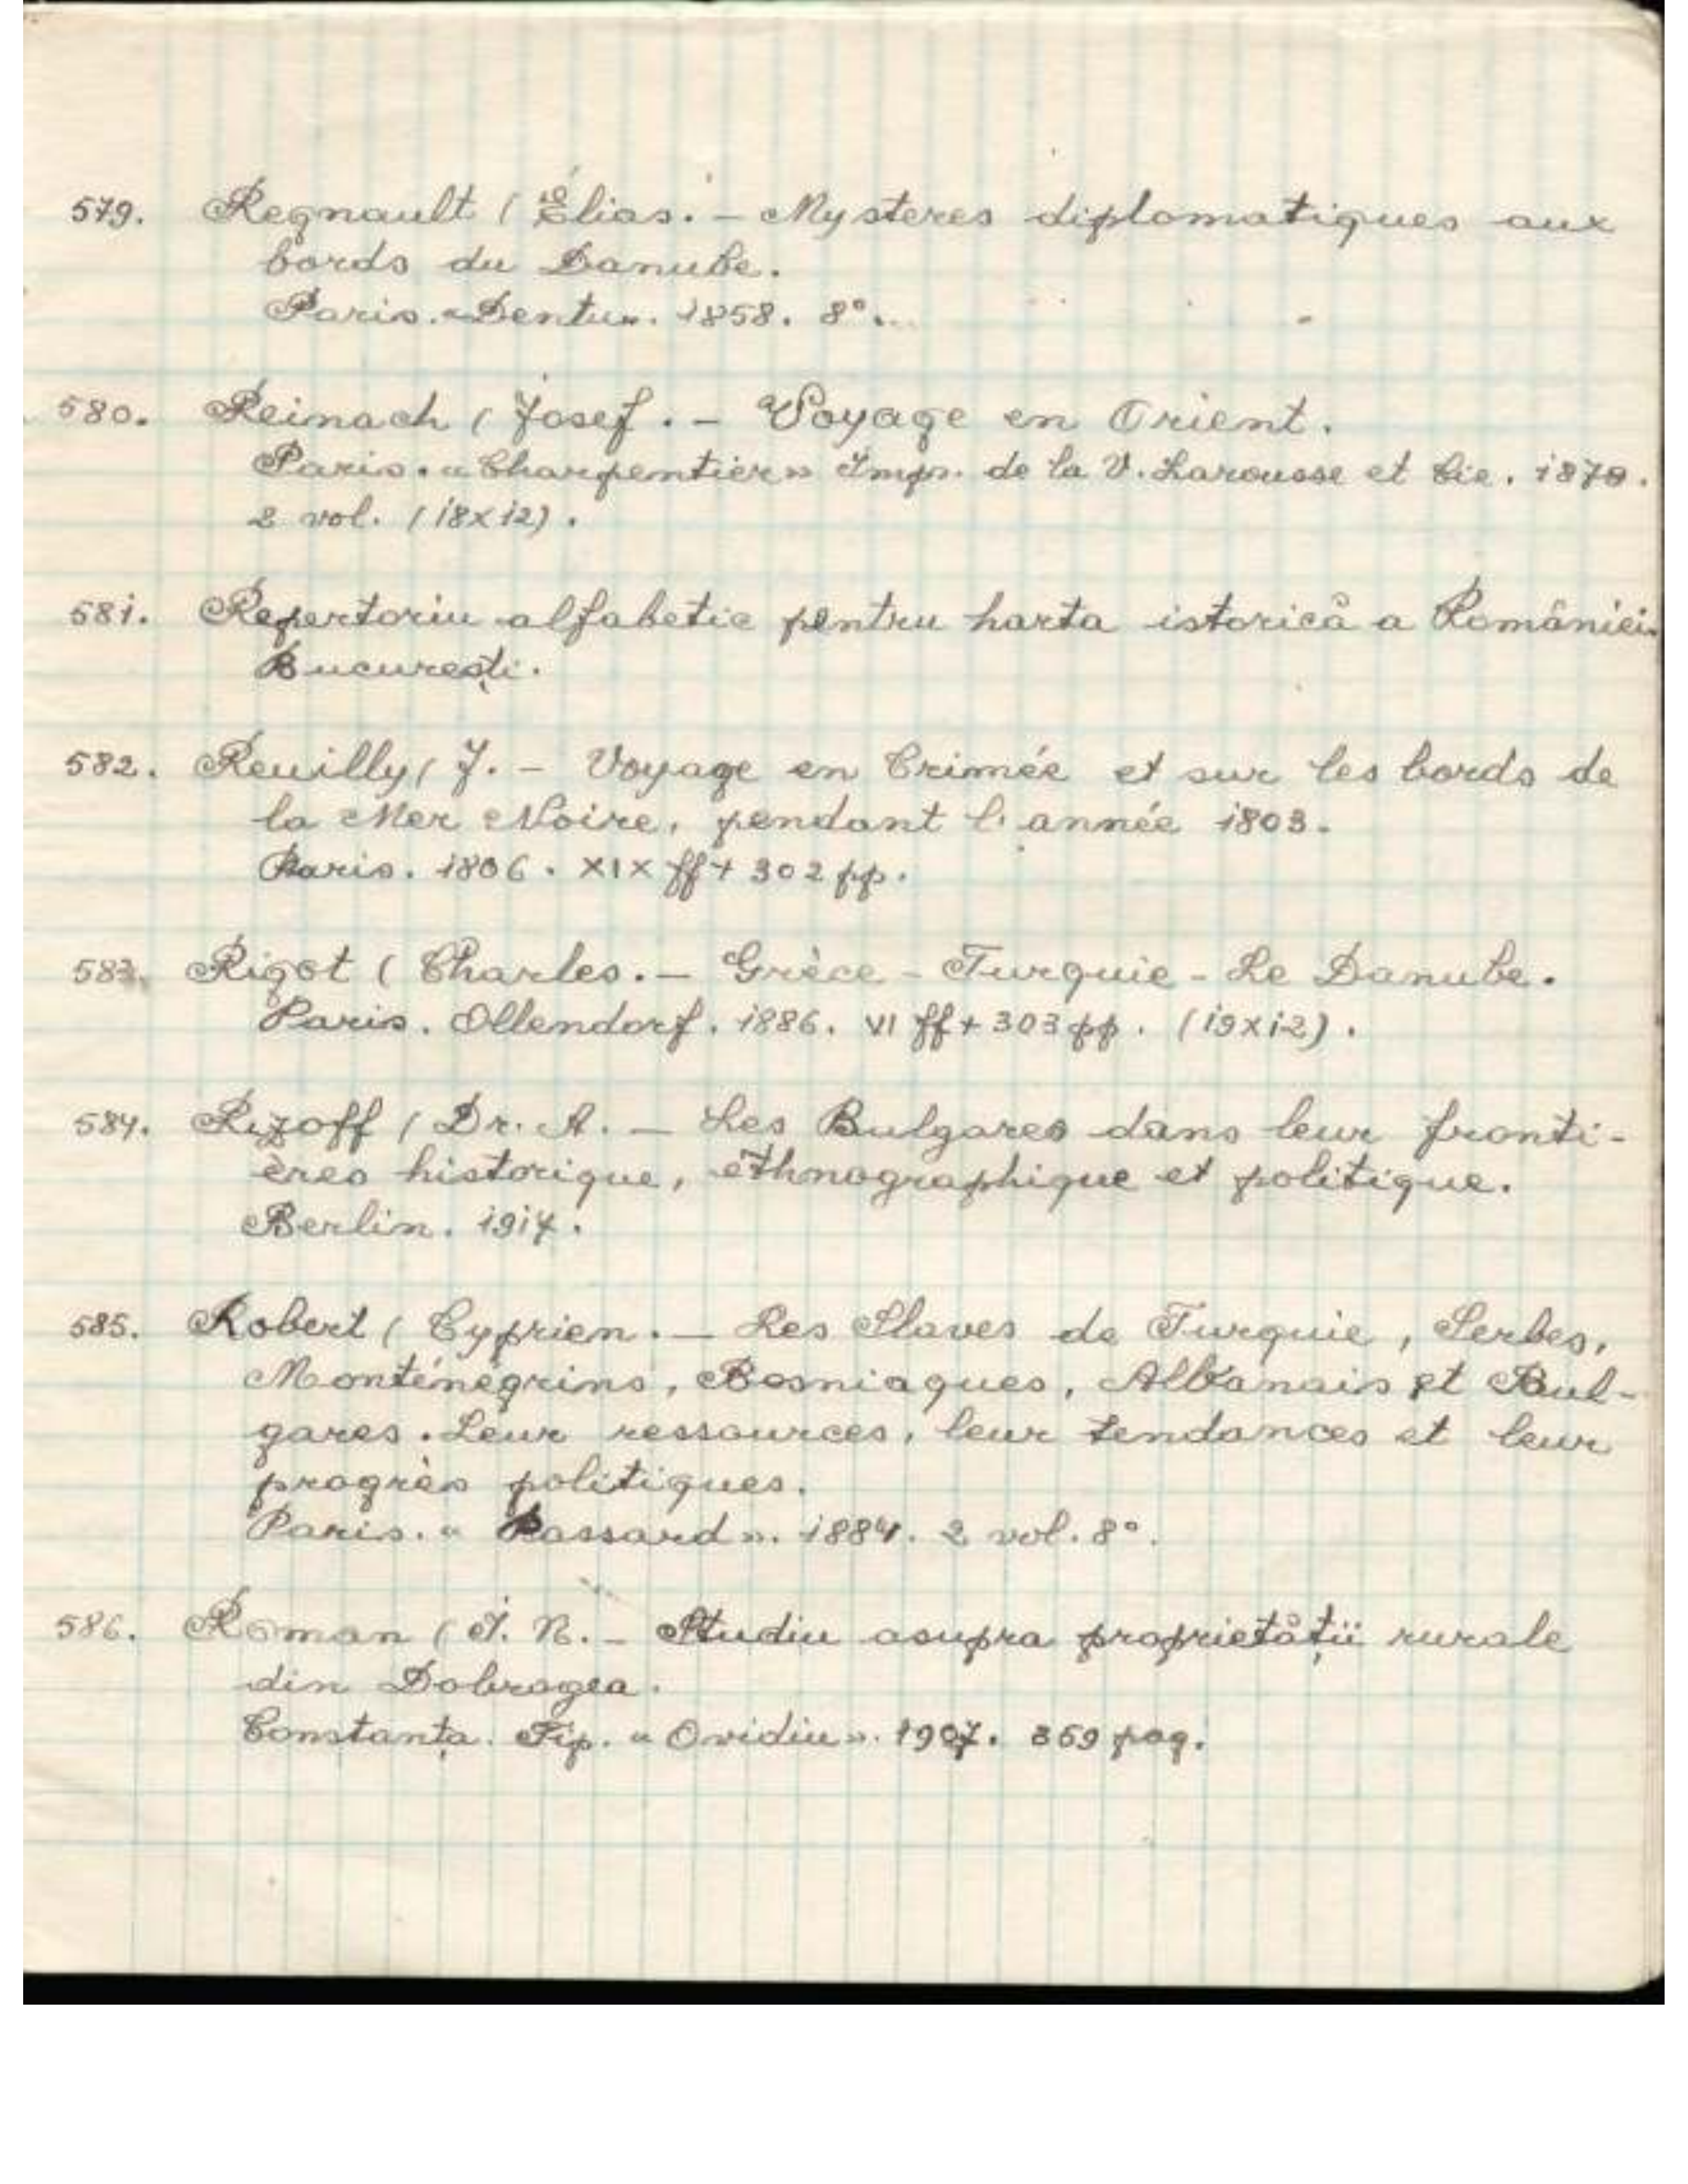 579. Regnault (Élias. – Mysteres diplomatiques aux
bords du Danube.
Paris. «Dentu». 1858. 8°...
580. Reinach (Josef. – Voyage en Orient.
Paris. «Charpentier» Imp. de la V. Larousse et Cie. 1879.
2 vol. (18x12).
581. Repertoriu alfabetic pentru harta istorică a României.
București.
582. Reuilly (J. – Voyage en Crimée et sur les bords de
la Mer Noire, pendant l'année 1803.
Paris. 1806. XIX ff + 302 pp.
583. Rigot (Charles. – Grèce – Turquie – Le Danube.
Paris. Ollendorf. 1886. VI ff + 303 pp. (19x12).
584. Rizoff (Dr. A. – Les Bulgares dans leur fronti-
ères historique, éthnographique et politique.
Berlin. 1917.
585. Robert (Cyprien. – Les Slaves de Turquie, Serbes,
Monténégrins, Bosniaques, Albanais et Bul-
gares. Leur ressources, leur tendances et leur
progrès politiques.
Paris. « Passard ». 1884. 2 vol. 8°.
586. Roman (I. N. – Studiu asupra proprietății rurale
din Dobrogea.
Constanța. Tip. « Ovidiu ». 1907. 359 pag.